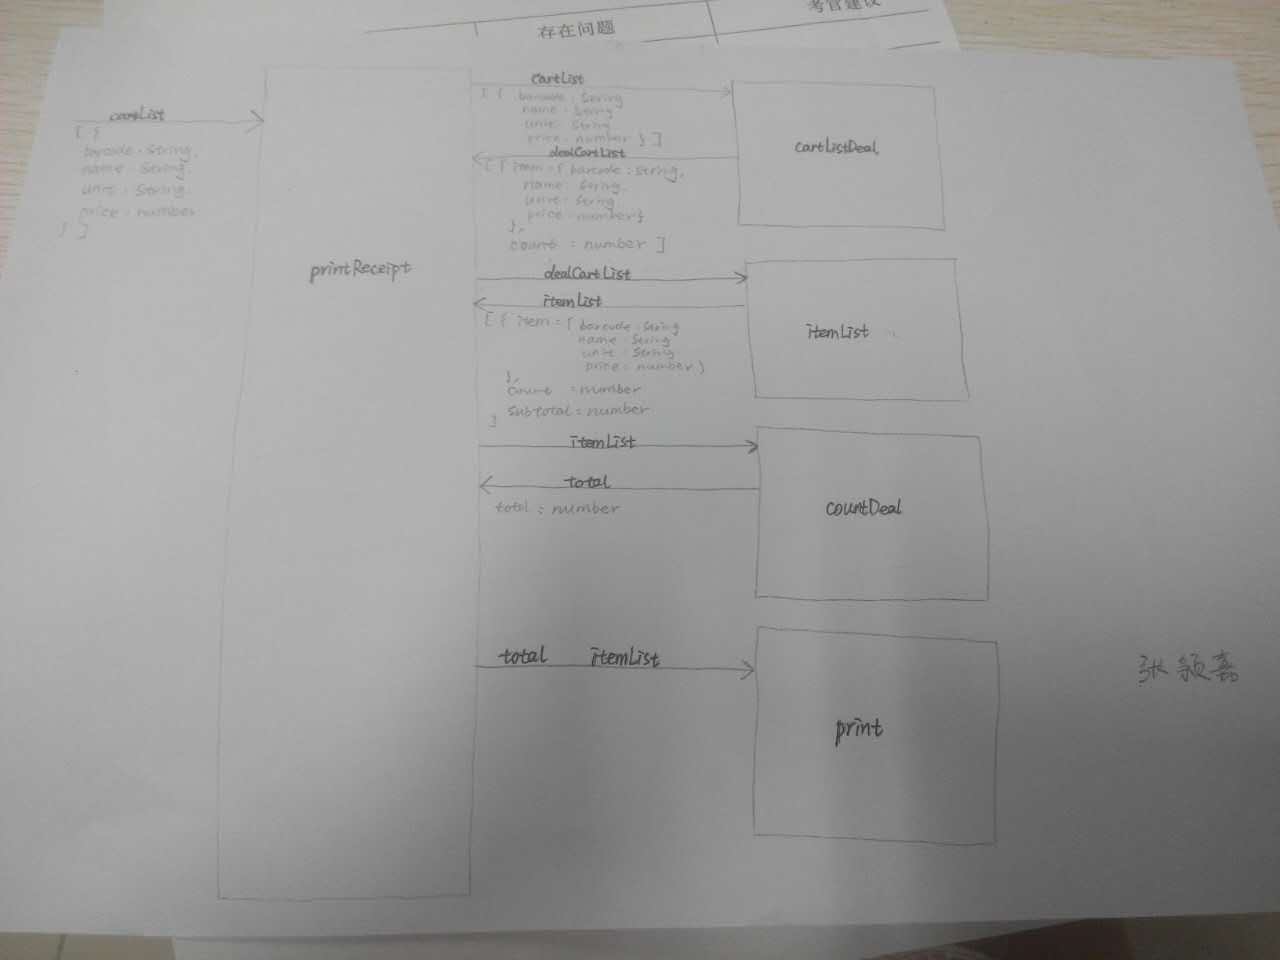 存在问题
考官建议
cartList
[ {
barcode : String,
name : String,
unit : String,
price : number
} ]
printReceipt
cartList
[ { barcode : String
name : String
unit : String
price : number } ]
dealCartList
[ { item = { barcode : String,
name : String,
unit : String
price : number }
},
count = number ]
cartListDeal
dealCartList
itemList
[ { item = { barcode : String
name : String
unit : String
price : number }
},
count = number
subtotal = number
]
itemList
itemList
total
total : number
countDeal
total itemList
print
张颖嘉